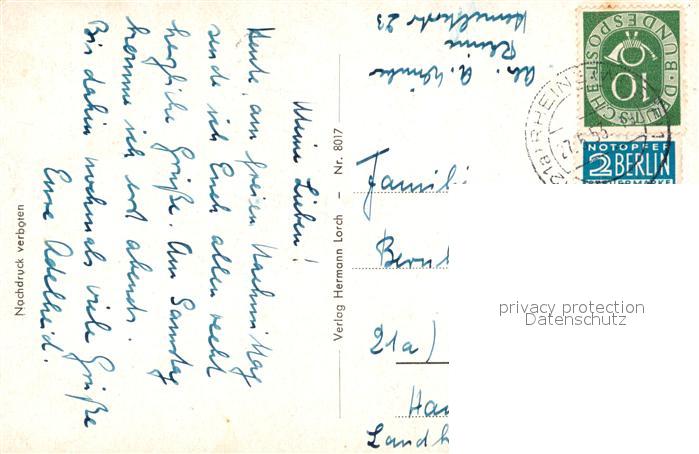 Meine Lieben!
Heute, am freien Nachmittag
sende ich Euch allen recht
herzliche Grüße. Am Samstag
komme ich erst abends.
Bis dahin nochmals viele Grüße
Eure Adelheid.
Nachdruck verboten
Verlag Hermann Lorch – Nr. 8017
Abs. A.
Rheine
23
Famili
Bern
21a)
Ha
Landk
DEUTSCHE BUNDESPOST
10
(21a) RHEINE
NOTOPFER
2 BERLIN
STEUERMARKE
privacy protection
Datenschutz